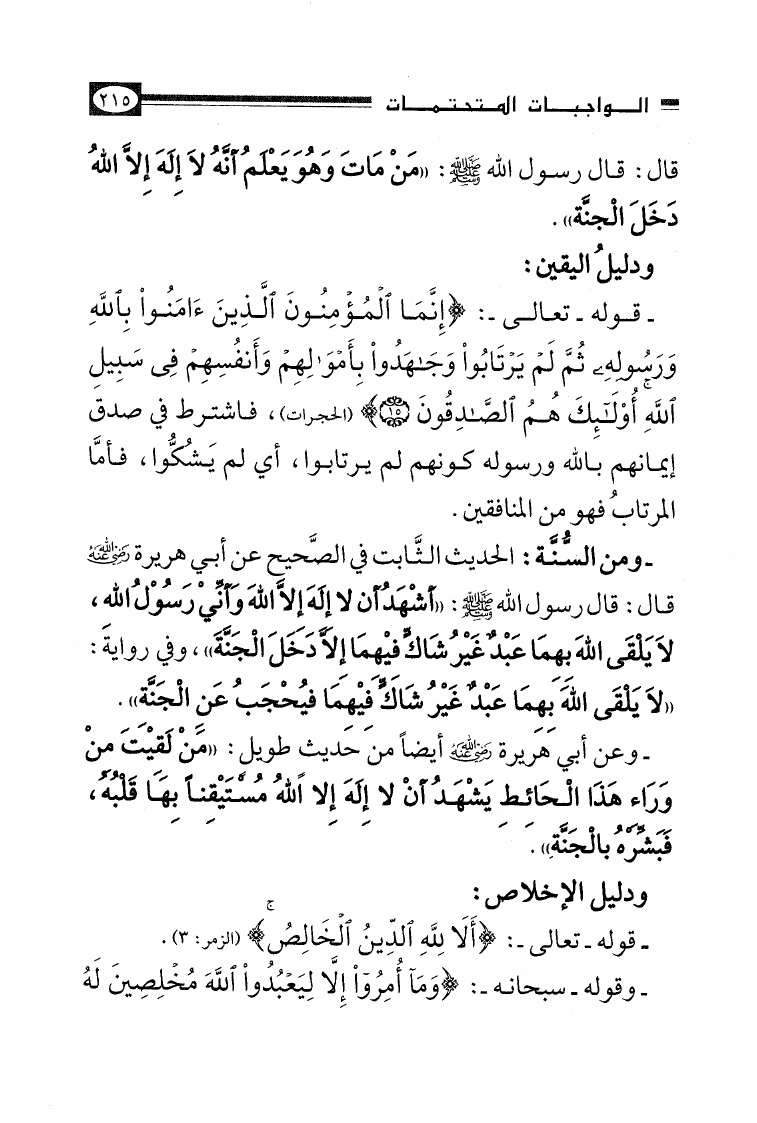 الـواجبـات المتحتمـات ٢١٥
قال: قال رسول الله ﷺ: «مَنْ مَاتَ وَهُوَ يَعْلَمُ أَنَّهُ لاَ إِلَهَ إِلاَّ اللهُ
دَخَلَ الْجَنَّةَ».
ودليلُ اليقين:
ـ قـولـه ـ تعـالـى ـ: ﴿إِنَّمَا ٱلْمُؤْمِنُونَ ٱلَّذِينَ ءَامَنُواْ بِٱللَّهِ
وَرَسُولِهِۦ ثُمَّ لَمْ يَرْتَابُواْ وَجَٰهَدُواْ بِأَمْوَٰلِهِمْ وَأَنفُسِهِمْ فِى سَبِيلِ
ٱللَّهِۚ أُوْلَٰٓئِكَ هُمُ ٱلصَّٰدِقُونَ ۝١٥﴾ (الحجرات)، فـاشتـرط في صدق
إيمـانهم بـالله ورسوله كـونهم لم يـرتابـوا، أي لم يَـشُكُّوا، فـأمَّا
المرتابُ فهو من المنافقين.
ـ ومن السُّنَّة: الحديث الثَّابت في الصَّحيح عن أبـي هريرة رضي الله عنه
قـال: قال رسول الله ﷺ: «أَشْهَدُ أَن لا إِلَهَ إِلاَّ اللهَ وَأَنِّيْ رَسُوْلُ الله،
لاَ يَلْقَى اللهَ بِهِمَا عَبْدٌ غَيْرُ شَاكٍّ فِيْهِمَا إِلاَّ دَخَلَ الْجَنَّةَ»، وفي رواية:
«لاَ يَلْقَى اللهَ بِهِمَا عَبْدٌ غَيْرُ شَاكٍّ فِيْهِمَا فَيُحْجَبُ عَنِ الْجَنَّةِ».
ـ وعن أبي هريرة رضي الله عنه أيضاً من حديث طويل: «مَنْ لَقِيْتَ مِنْ
وَرَاءِ هَذَا الْحَائِطِ يَشْهَدُ أَنْ لا إِلَهَ إِلا اللهُ مُسْتَيْقِناً بِهَا قَلْبُهُ،
فَبَشِّرْهُ بِالْجَنَّةِ».
ودليل الإخلاص:
ـ قوله ـ تعالى ـ: ﴿أَلَا لِلَّهِ ٱلدِّينُ ٱلْخَالِصُۚ﴾ (الزمر: ٣).
ـ وقوله ـ سبحانـه ـ: ﴿وَمَآ أُمِرُوٓاْ إِلَّا لِيَعْبُدُواْ ٱللَّهَ مُخْلِصِينَ لَهُ